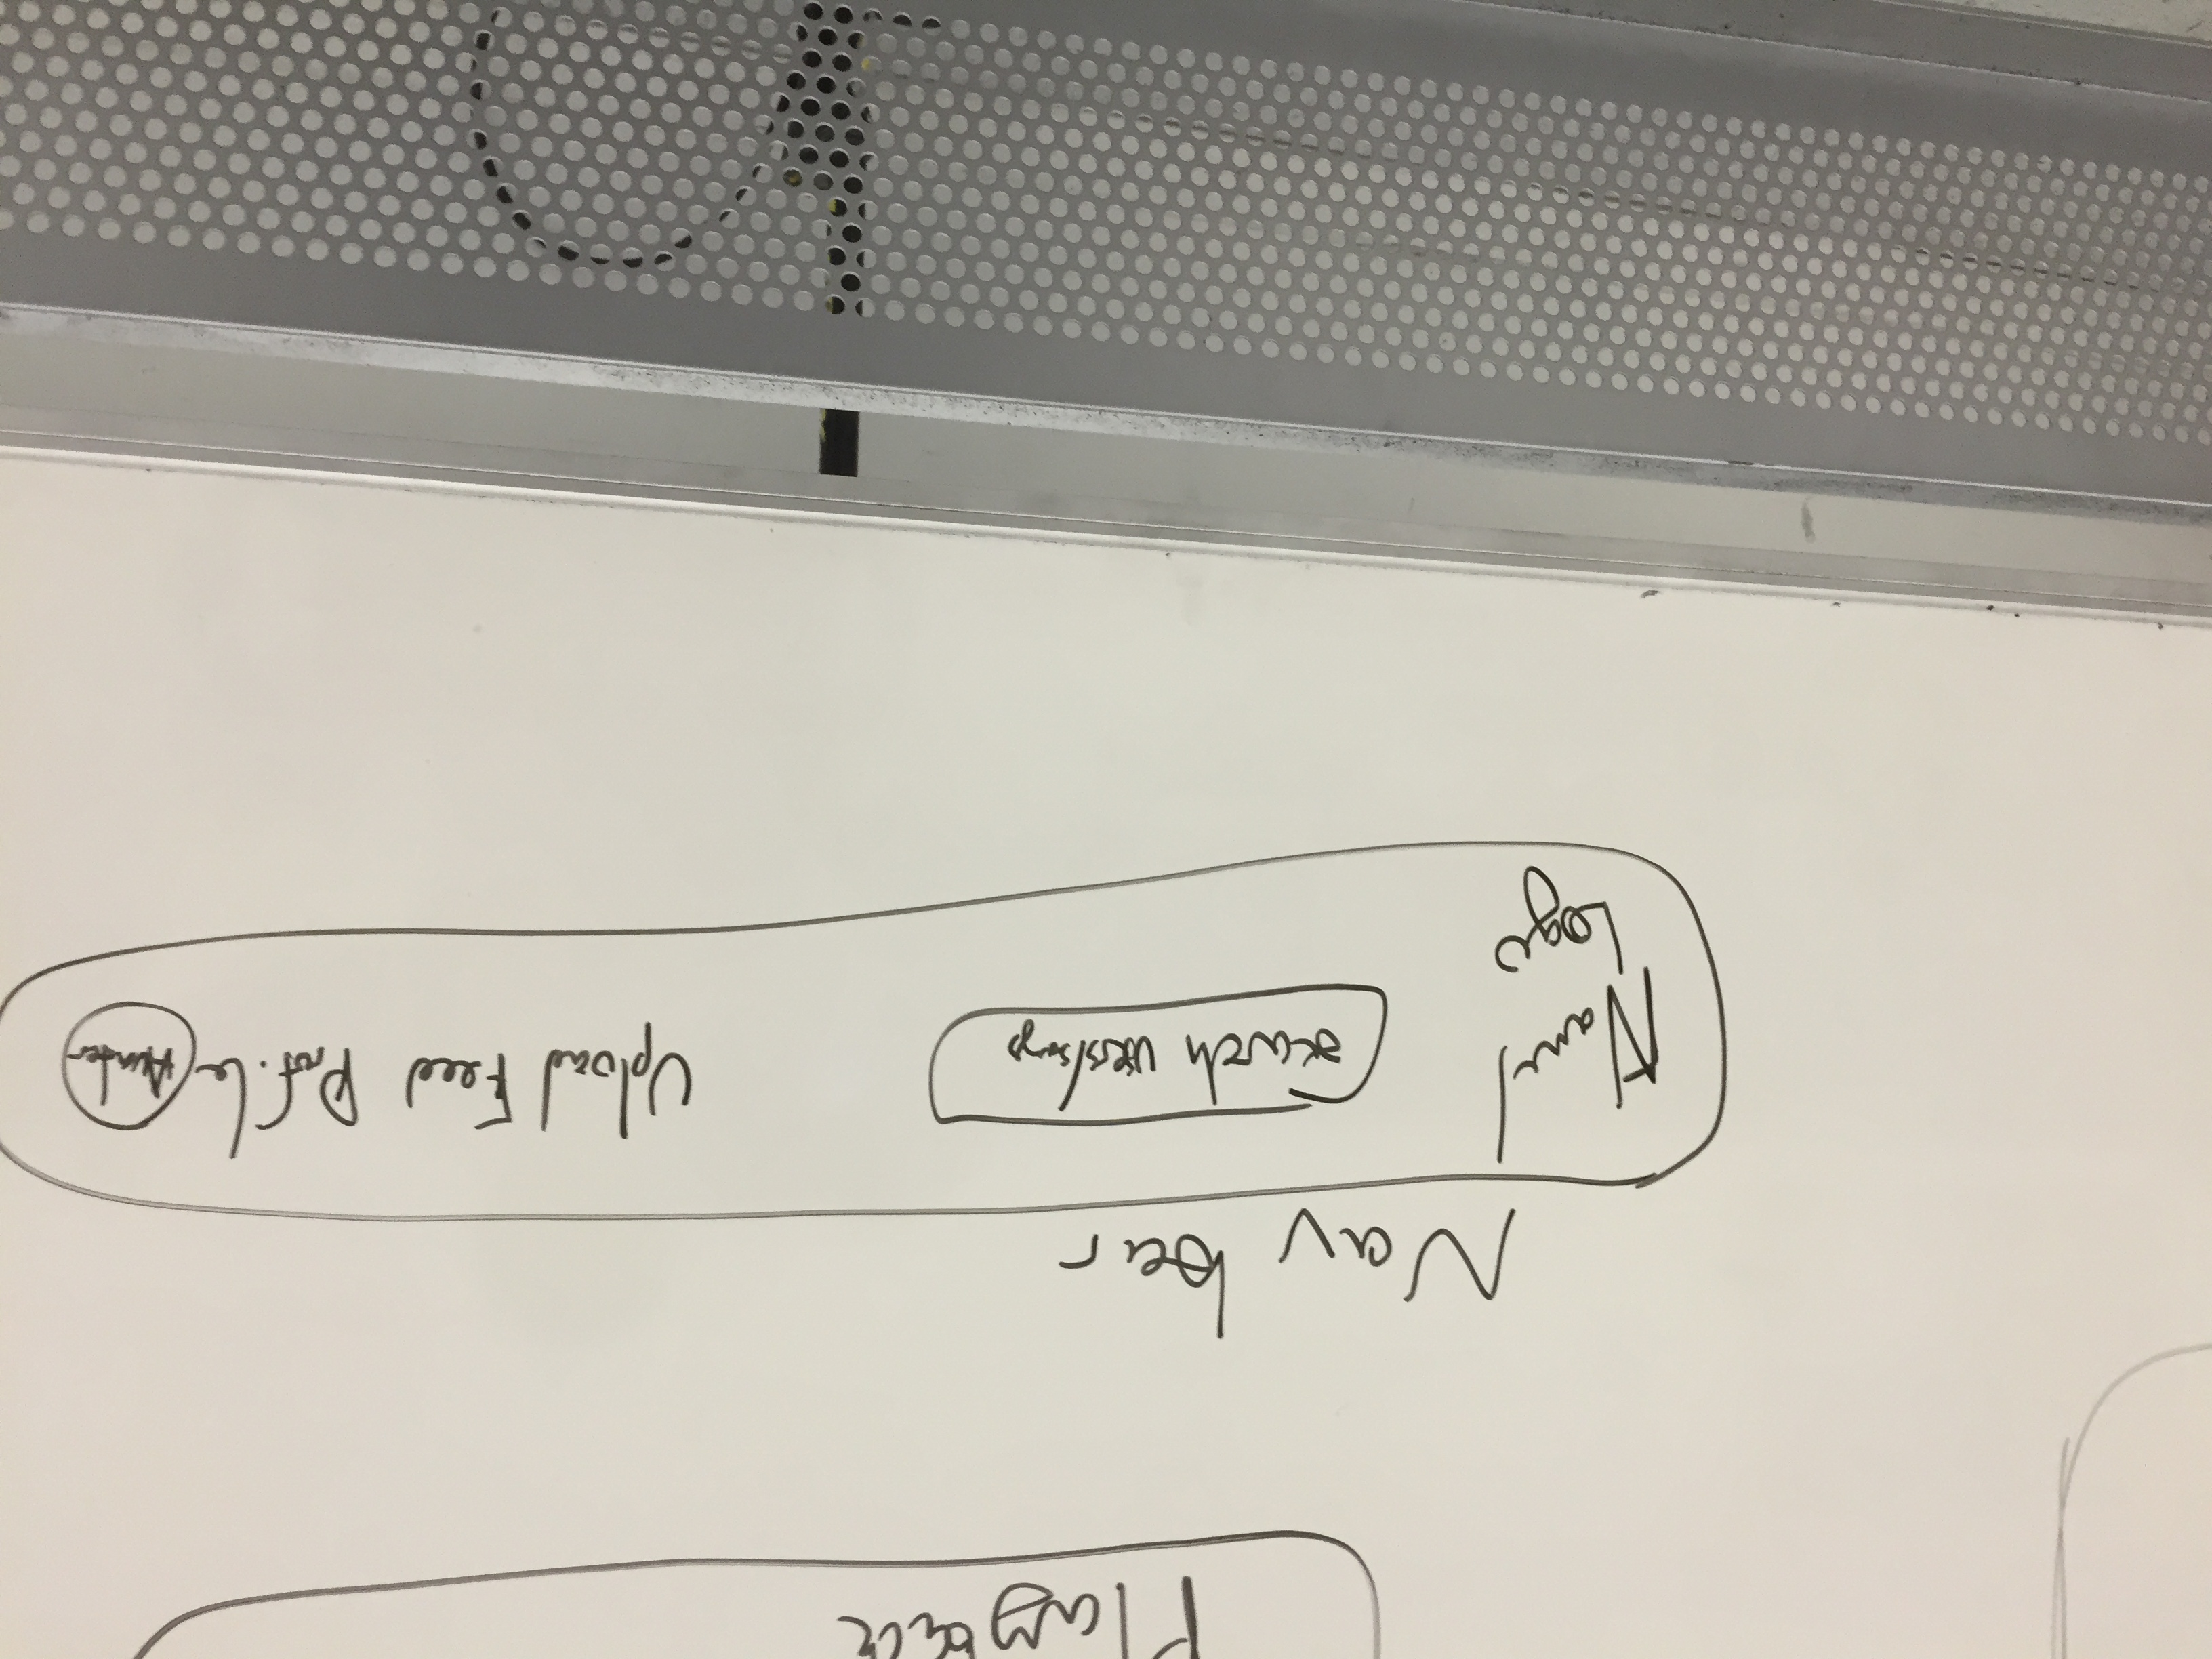 Playback
Nav bar
Name/
Logo
search users/songs
Upload Feed Profile